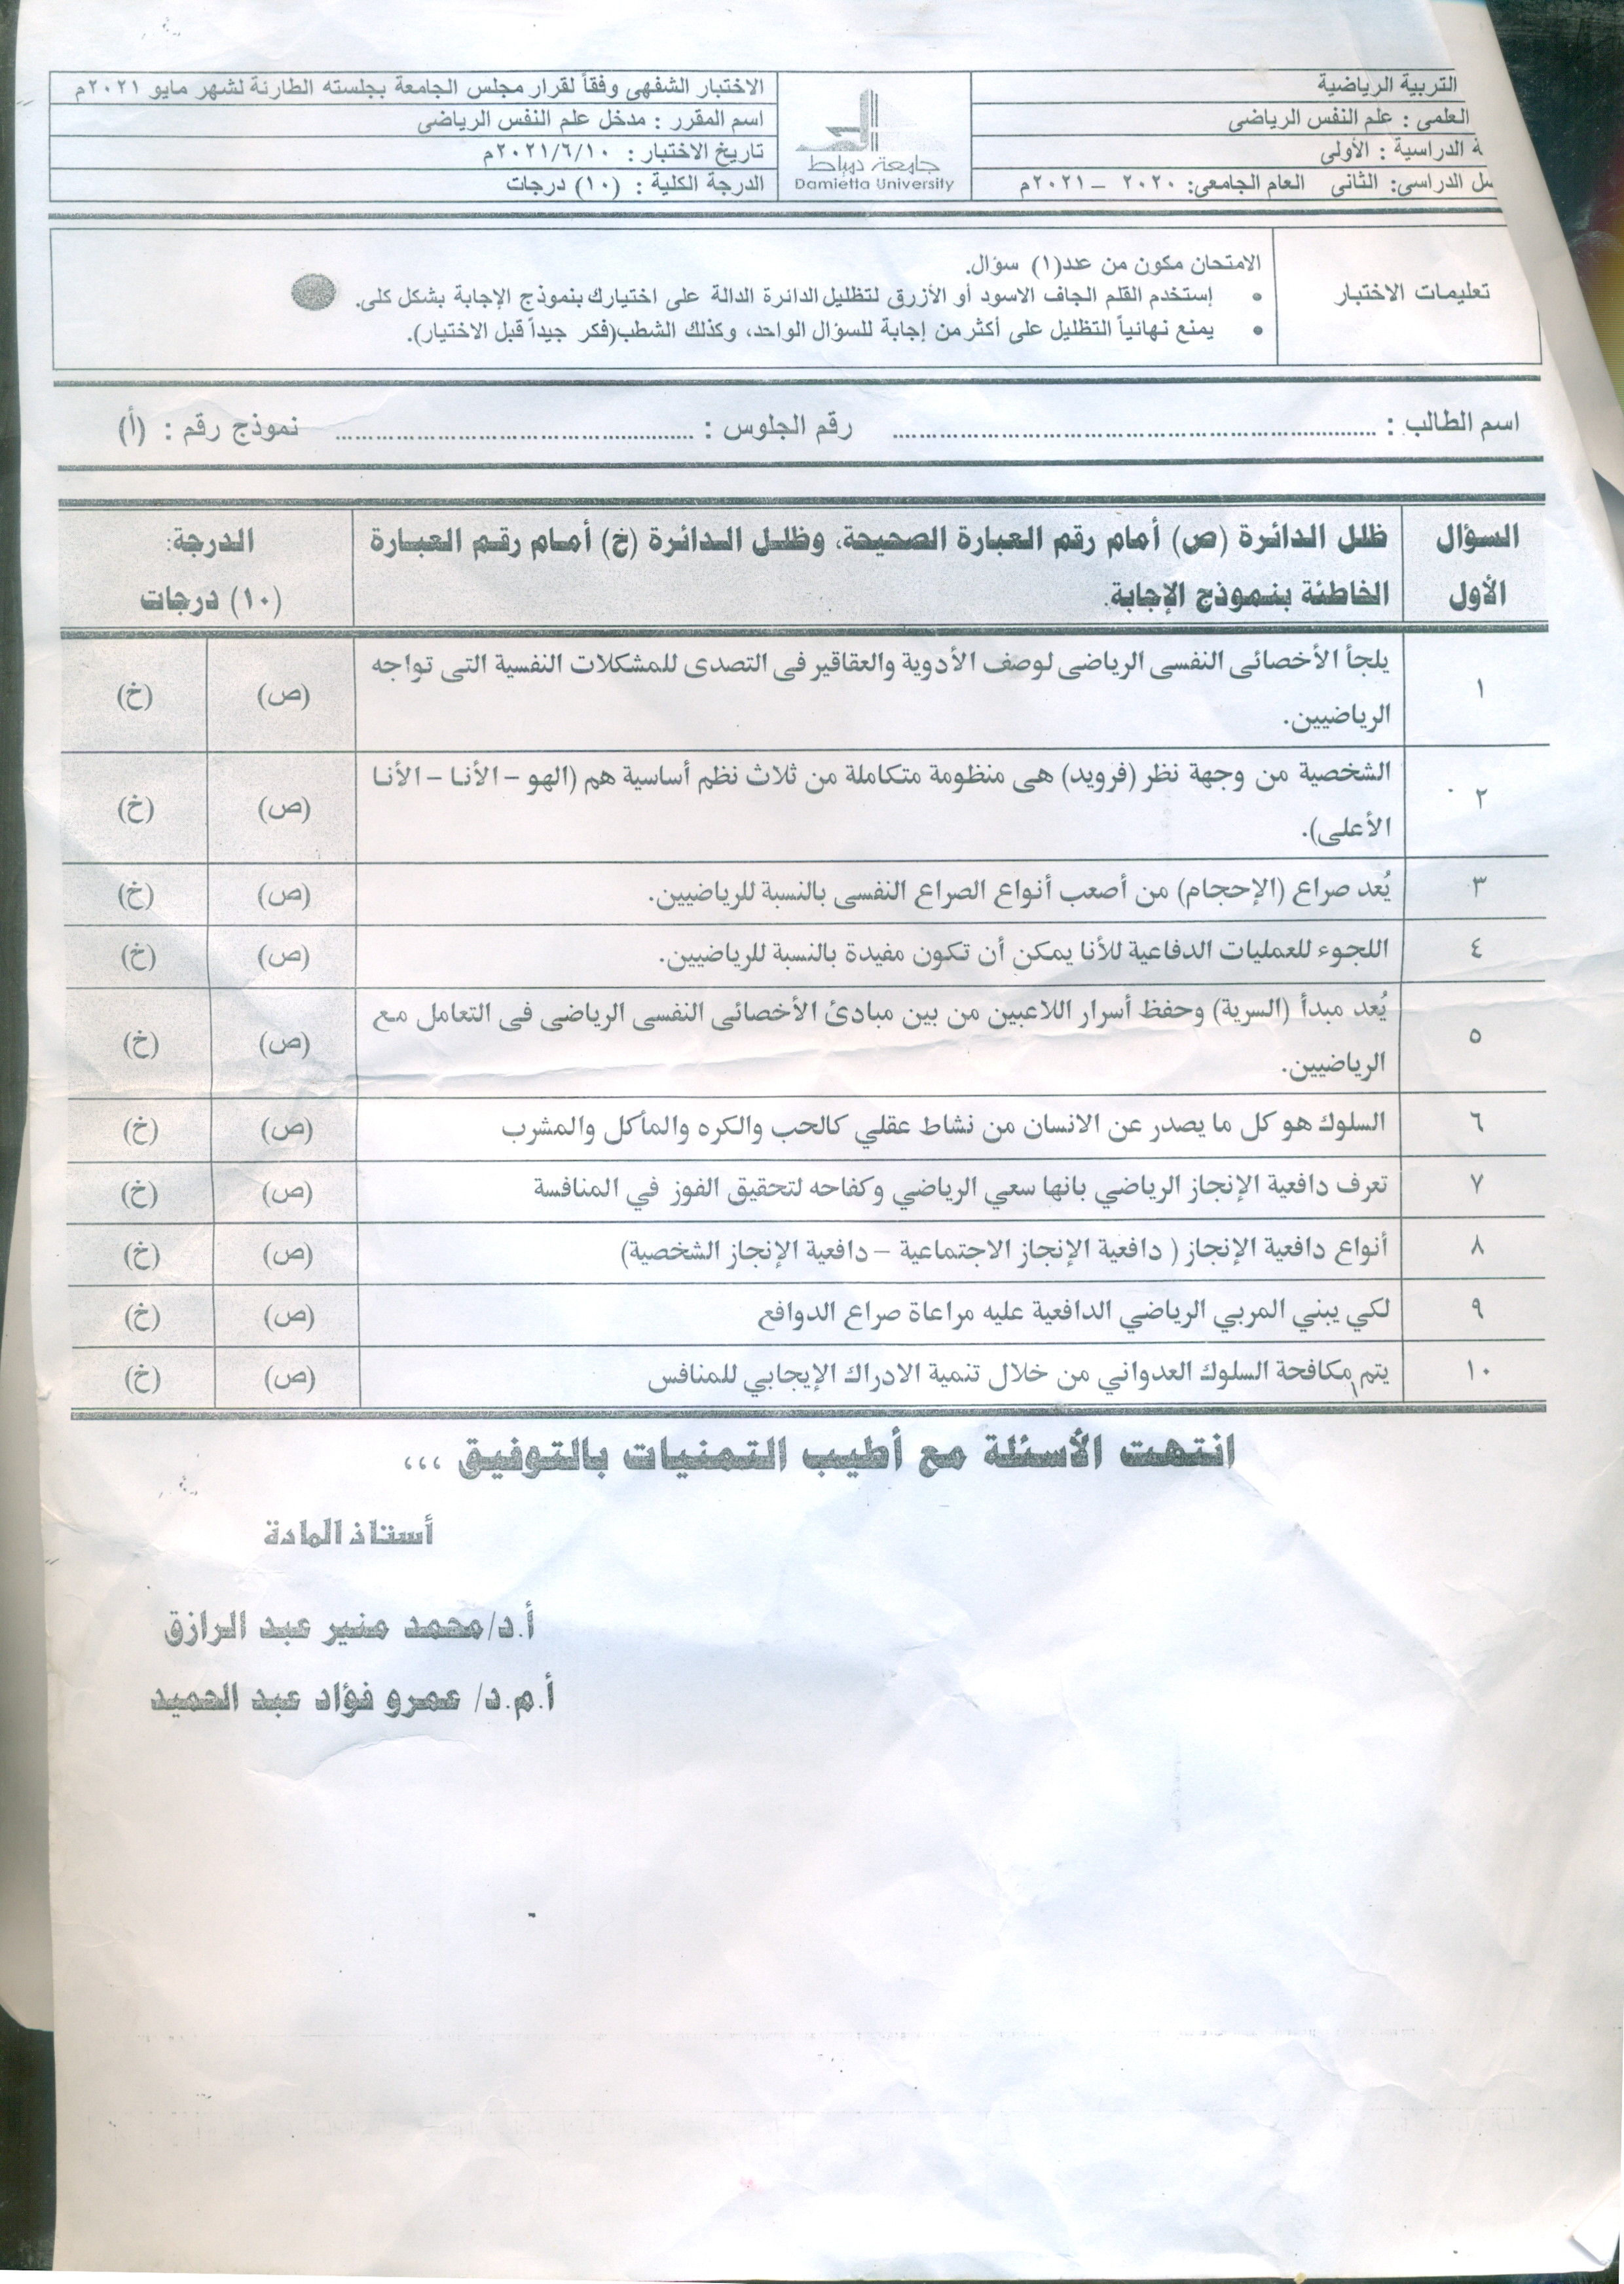 التربية الرياضية
العلمى : علم النفس الرياضى
ة الدراسية : الأولى
الدراسى: الثانى العام الجامعى: ٢٠٢٠ – ٢٠٢١م
جامعة دمياط
Damietta University
الاختبار الشفهى وفقاً لقرار مجلس الجامعة بجلسته الطارئة لشهر مايو ٢٠٢١م
اسم المقرر : مدخل علم النفس الرياضى
تاريخ الاختبار : ٢٠٢١/٦/١٠م
الدرجة الكلية : (١٠) درجات
تعليمات الاختبار
الامتحان مكون من عدد(١) سؤال.
• إستخدم القلم الجاف الاسود أو الأزرق لتظليل الدائرة الدالة على اختيارك بنموذج الإجابة بشكل كلى.
• يمنع نهائياً التظليل على أكثر من إجابة للسؤال الواحد، وكذلك الشطب(فكر جيداً قبل الاختيار).
اسم الطالب : ........................ رقم الجلوس : ........................ نموذج رقم : (أ)
السؤال الأول
ظلل الدائرة (ص) أمام رقم العبارة الصحيحة، وظلل الدائرة (خ) أمام رقم العبارة
الخاطئة بنموذج الإجابة.
الدرجة:
(١٠) درجات
١ يلجأ الأخصائى النفسى الرياضى لوصف الأدوية والعقاقير فى التصدى للمشكلات النفسية التى تواجه
الرياضيين. (ص) (خ)
٢ الشخصية من وجهة نظر (فرويد) هى منظومة متكاملة من ثلاث نظم أساسية هم (الهو – الأنا – الأنا
الأعلى). (ص) (خ)
٣ يُعد صراع (الإحجام) من أصعب أنواع الصراع النفسى بالنسبة للرياضيين. (ص) (خ)
٤ اللجوء للعمليات الدفاعية للأنا يمكن أن تكون مفيدة بالنسبة للرياضيين. (ص) (خ)
٥ يُعد مبدأ (السرية) وحفظ أسرار اللاعبين من بين مبادئ الأخصائى النفسى الرياضى فى التعامل مع
الرياضيين. (ص) (خ)
٦ السلوك هو كل ما يصدر عن الانسان من نشاط عقلي كالحب والكره والمأكل والمشرب (ص) (خ)
٧ تعرف دافعية الإنجاز الرياضي بانها سعي الرياضي وكفاحه لتحقيق الفوز في المنافسة (ص) (خ)
٨ أنواع دافعية الإنجاز ( دافعية الإنجاز الاجتماعية – دافعية الإنجاز الشخصية) (ص) (خ)
٩ لكي يبني المربي الرياضي الدافعية عليه مراعاة صراع الدوافع (ص) (خ)
١٠ يتم مكافحة السلوك العدواني من خلال تنمية الادراك الإيجابي للمنافس (ص) (خ)
انتهت الأسئلة مع أطيب التمنيات بالتوفيق ،،،
أستاذ المادة
أ.د/محمد منير عبد الرازق
أ.م.د/ عمرو فؤاد عبد الحميد